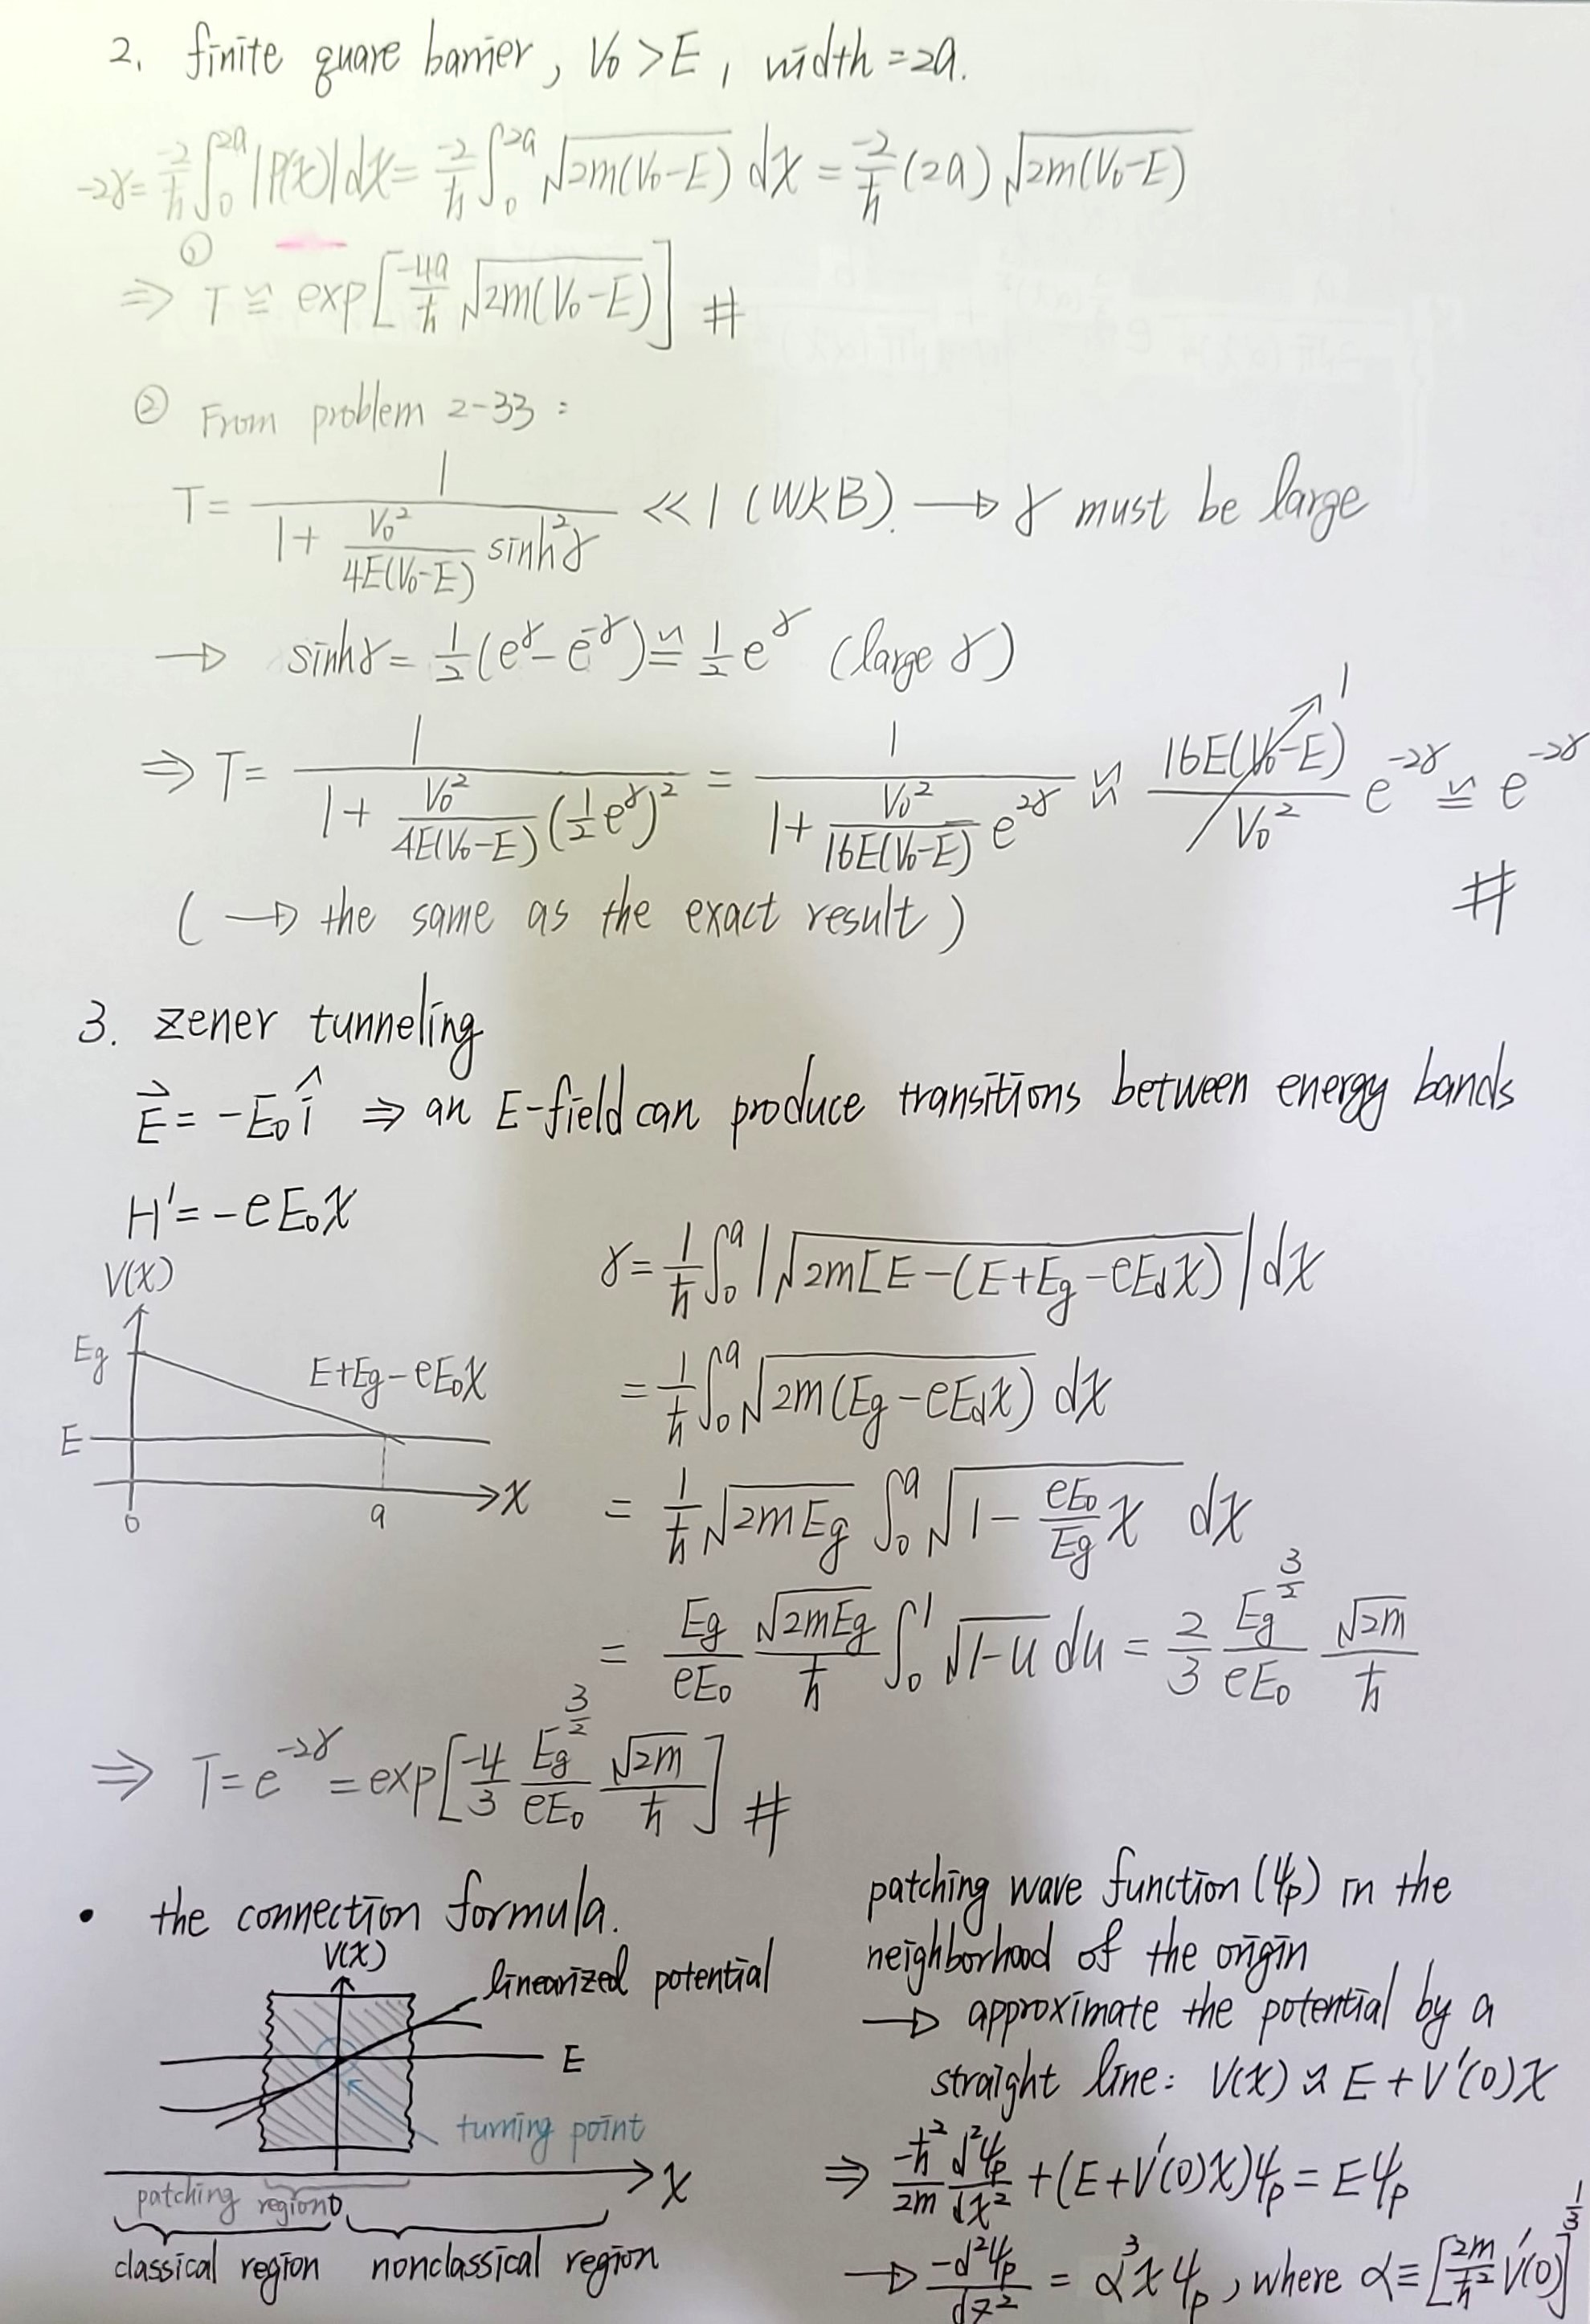 2. finite quare barrier, V₀ > E, width = 2a.
-2γ = -2/ħ ∫₀^2a |P(x)| dx = -2/ħ ∫₀^2a √(2m(V₀-E)) dx = -2/ħ (2a) √(2m(V₀-E))
① ⇒ T ≅ exp[-4a/ħ √(2m(V₀-E))] #
② From problem 2-33 :
T = 1/(1 + V₀²/(4E(V₀-E)) sinh²γ) << 1 (WKB). → γ must be large
→ sinhγ = 1/2 (e^γ - e^-γ) ≅ 1/2 e^γ (large γ)
⇒ T = 1/(1 + V₀²/(4E(V₀-E)) (1/2 e^γ)²) = 1/(1 + V₀²/(16E(V₀-E)) e^2γ) ≈ 16E(V₀-E)/V₀² e^-2γ ≅ e^-2γ
1
( → the same as the exact result ) #
3. zener tunneling
E⃗ = -E₀ î ⇒ an E-field can produce transitions between energy bands
H' = -eE₀x
V(x)
Eg
E+Eg-eE₀x
E
0
a
x
γ = 1/ħ ∫₀^a |√(2m[E-(E+Eg-eE₀x)| dx
= 1/ħ ∫₀^a √(2m(Eg-eE₀x)) dx
= 1/ħ √(2mEg) ∫₀^a √(1 - eE₀/Eg x) dx
= Eg/eE₀ √(2mEg)/ħ ∫₀^1 √(1-u) du = 2/3 Eg^3/2/eE₀ √(2m)/ħ
⇒ T = e^-2γ = exp[-4/3 Eg^3/2/eE₀ √(2m)/ħ] #
• the connection formula.
V(x)
linearized potential
E
turning point
x
patching region
0
classical region
nonclassical region
patching wave function (ψp) in the
neighborhood of the origin
→ approximate the potential by a
straight line: V(x) ≈ E + V'(0)x
⇒ -ħ²/2m d²ψp/dx² + (E+V'(0)x)ψp = Eψp
→ -d²ψp/dx² = α³xψp, where α ≡ [2m/ħ² V'(0)]^1/3